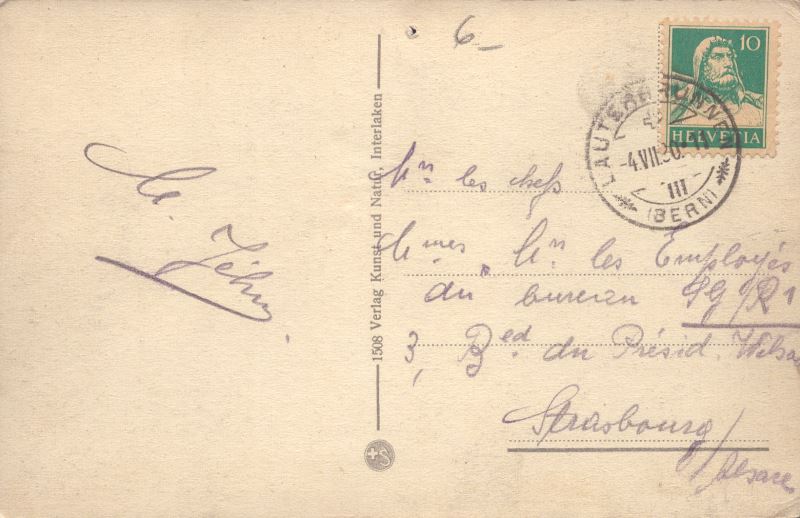 6_
10
HELVETIA
LAUTERBRUNNEN
-4.VII.30.
III
(BERN)
1508 Verlag Kunst und Natur, Interlaken
M.
Mrs les chefs
Mmes, Mrs les Employés
du bureau
3, Bed du Présid.
Strasbourg/
Alsace